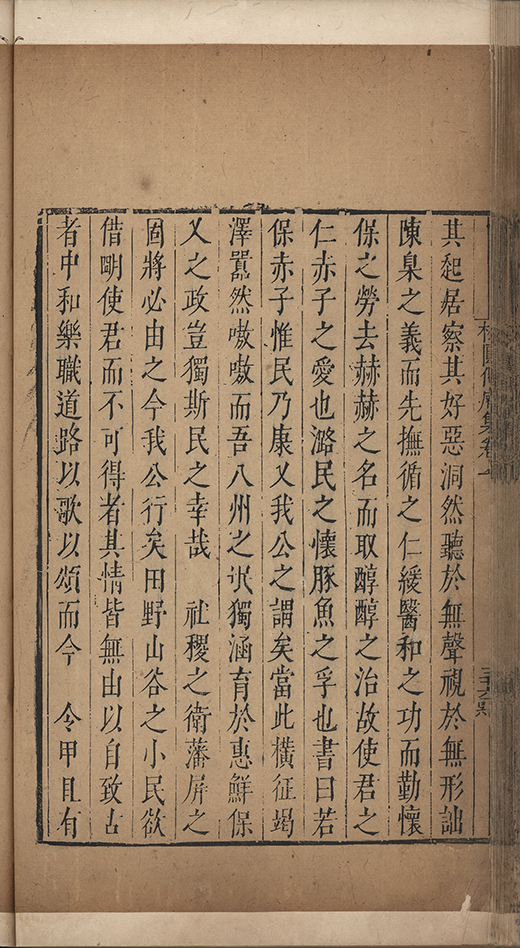 其起居察其好惡洞然聽於無聲視於無形詘
陳臬之義而先撫循之仁緩醫和之功而勤懷
保之勞去赫赫之名而取醇醇之治故使君之
仁赤子之愛也潞民之懷豚魚之孚也書曰若
保赤子惟民乃康乂我公之謂矣當此橫征竭
澤囂然嗷嗷而吾八州之氓獨涵育於惠鮮保
乂之政豈獨斯民之幸哉　社稷之衛藩屏之
固將必由之今我公行矣田野山谷之小民欲
借明使君而不可得者其情皆無由以自致古
者中和樂職道路以歌以頌而今　令甲且有